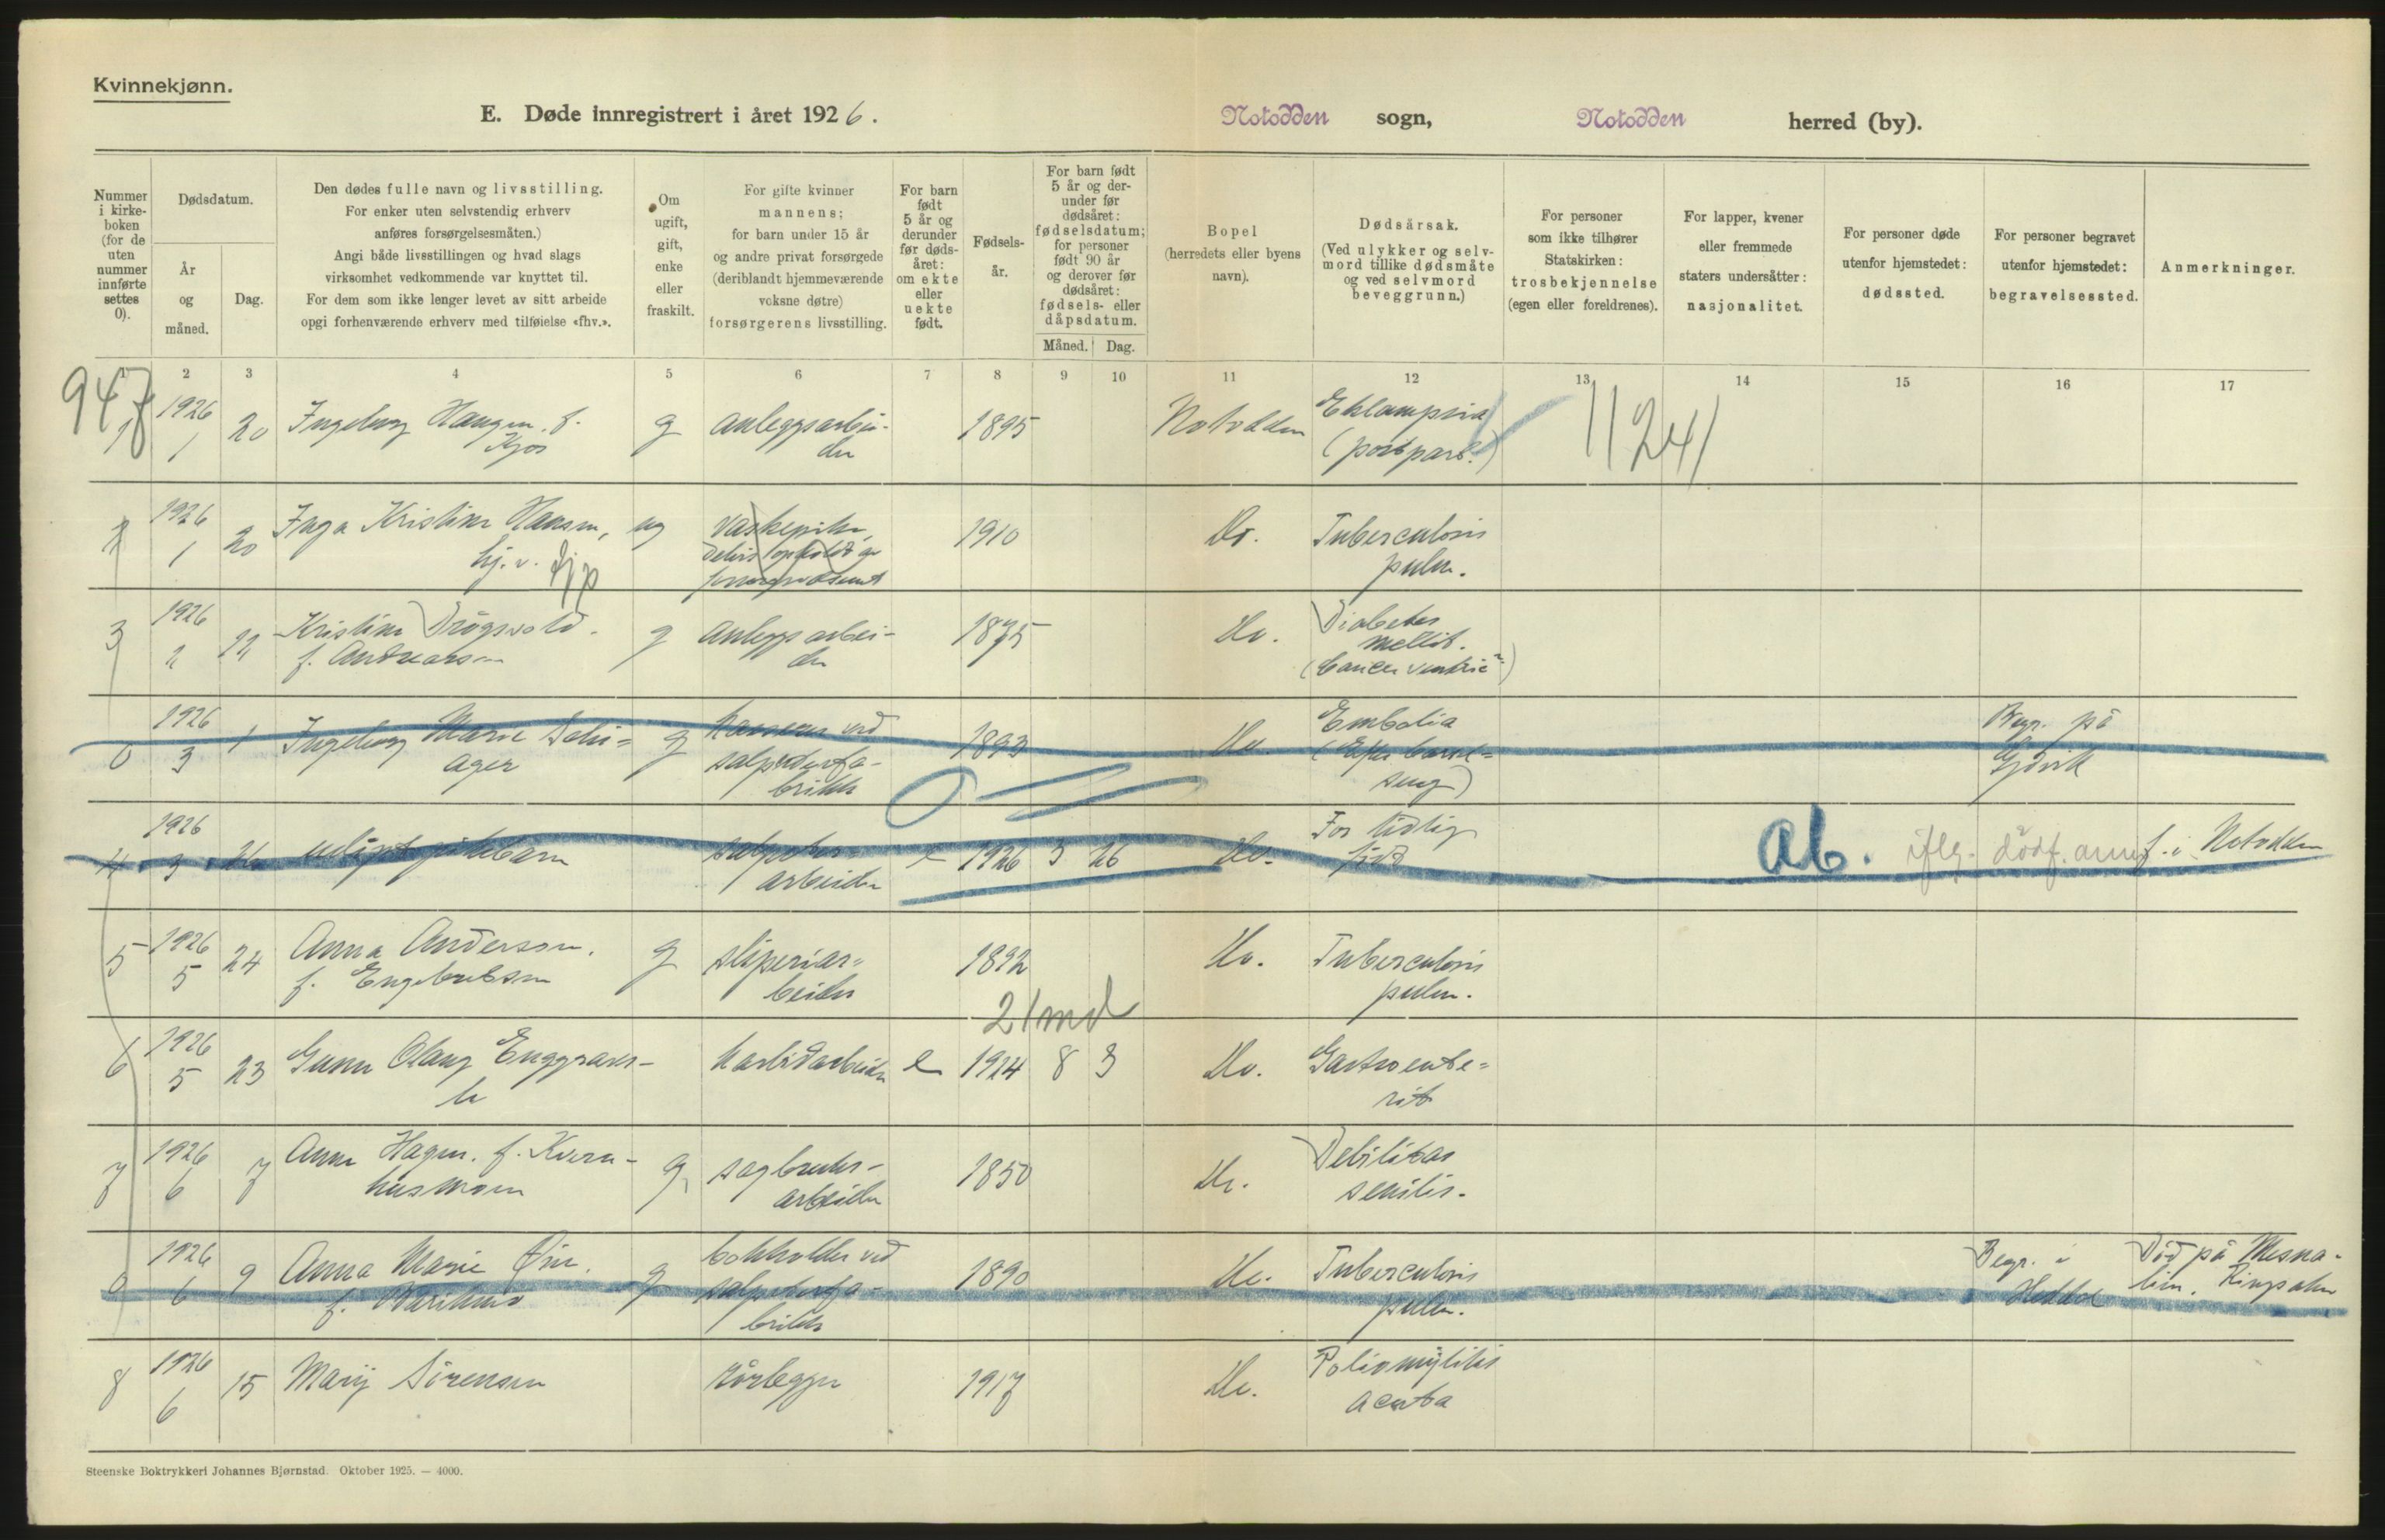 Kvinnekjønn.
E. Døde innregistrert i året 1926. Notodden sogn, Notodden herred (by).
Nummer i kirkeboken (for de uten nummer innførte settes 0).
Dødsdatum.
År og måned.
Dag.
Den dødes fulle navn og livsstilling.
For enker uten selvstendig erhverv
anføres forsørgelsesmåten.)
Angi både livsstillingen og hvad slags
virksomhet vedkommende var knyttet til.
For dem som ikke lenger levet av sitt arbeide
opgi forhenværende erhverv med tilføielse «fhv.».
Om ugift, gift, enke eller fraskilt.
For gifte kvinner
mannens;
for barn under 15 år
og andre privat forsørgede
(deriblandt hjemmeværende
voksne døtre)
forsørgerens livsstilling.
For barn født 5 år og derunder før dødsåret: om ekte eller uekte født.
Fødselsår.
For barn født 5 år og derunder før dødsåret: fødselsdatum; for personer født 90 år og derover før dødsåret: fødsels- eller dåpsdatum.
Måned. Dag.
Bopel
(herredets eller byens
navn).
Dødsårsak.
(Ved ulykker og selvmord tillike dødsmåte og ved selvmord beveggrunn.)
For personer
som ikke tilhører
Statskirken:
trosbekjennelse
(egen eller foreldrenes).
For lapper, kvener
eller fremmede
staters undersåtter:
nasjonalitet.
For personer døde
utenfor hjemstedet:
dødssted.
For personer begravet
utenfor hjemstedet:
begravelsessted.
Anmerkninger.
1 2 3 4 5 6 7 8 9 10 11 12 13 14 15 16 17
947
1 1926 1 20 Ingeborg Haugen. f. Kjos g anleggsarbeider 1895 Notodden Eklampsia (postpart.) 11241
2 1926 1 20 Inga Kristine Hansen, hj. v. ug vaskepike, 1910 Do. Tuberculosis pulm.
3 1926 2 22 Kristine Drögsvold. f. Andreassen g anleggsarbeider 1875 Do. Diabetes mellit. (Cancer ventric?)
0 1926 3 1 Ingeborg Marie Solhager g ved salpeterfabrikk 1893 Do. Embolia (Efter barselseng) Begr. på Gjövik
4 1926 3 26 udöpt pikebarn salpeterarbeider e 1926 3 26 Do. For tidlig född Ab. iflg. dödf. anm f. i Notodden
5 1926 5 24 Anna Anderson. f. Engebretsen g sliperiarbeider 1892 Do. Tuberculosis pulm.
21 md
6 1926 5 23 Gunn Olaug karbidarbeider e 1924 8 3 Do. Gastroenterit
7 1926 6 7 Anne Hagen. f. Kvernhusmoen g. sagbruksarbeider 1850 Do. Debilitas senilis.
0 1926 6 9 Anna Marie f. g bokholder ved salpeterfabrikk 1890 Do. Tuberculosis pulm. Begr. i Heddal Död på Mesnalien. Ringsaker
8 1926 6 15 Mary Sörensen rörlegger 1917 Do. Poliomyelitis acuta
Steenske Boktrykkeri Johannes Bjørnstad. Oktober 1925. — 4000.